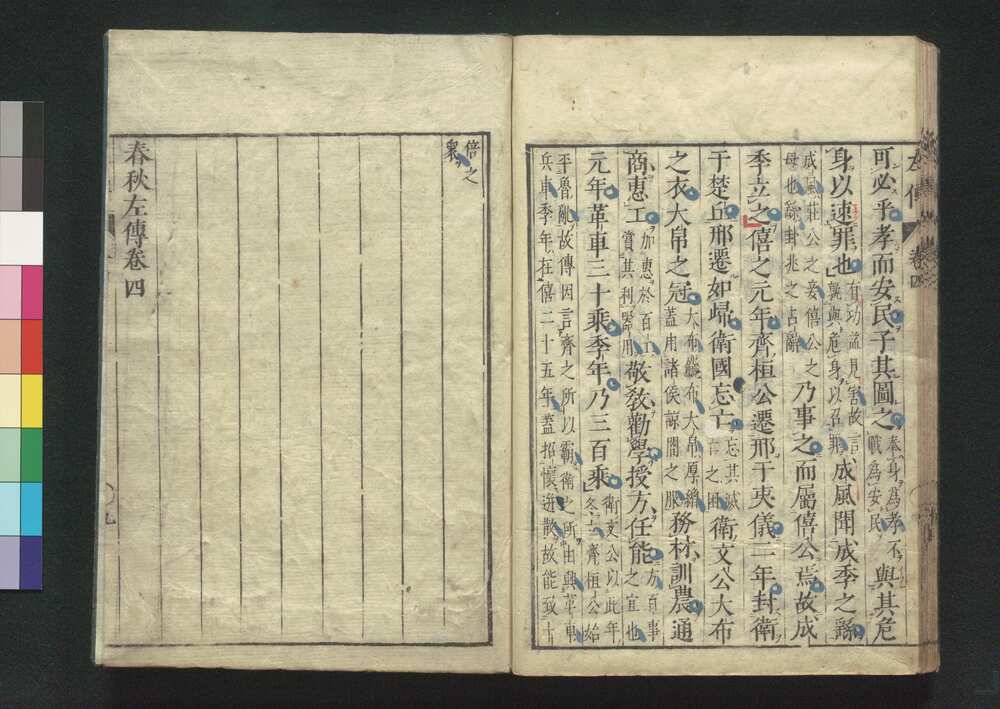 左傳 卷四
可必乎孝而安民子其圖之 奉身爲孝不戰爲安民 與其危
身以速罪也 有功益見害故言孰與危身以召罪 成風聞成季之繇
成風莊公之妾僖公之母也繇卦兆之占辭 乃事之而屬僖公焉故成
季立之僖之元年齊桓公遷邢于夷儀二年封衛
于楚丘邢遷如歸衛國忘亡 忘其滅亡之困 衛文公大布
之衣大帛之冠 大布麤布大帛厚繒蓋用諸侯諒闇之服 務材訓農通
商惠工 加惠於百工賞其利器用 敬教勸學授方任能 方百事之宜也
元年革車三十乘季年乃三百乘 衛文公以此年冬立齊桓公始
平魯亂故傳因言齊之所以霸衛之所由興革車
兵車季年在僖二十五年蓋招懷迸散故能致十
倍之
衆
春秋左傳卷四
九